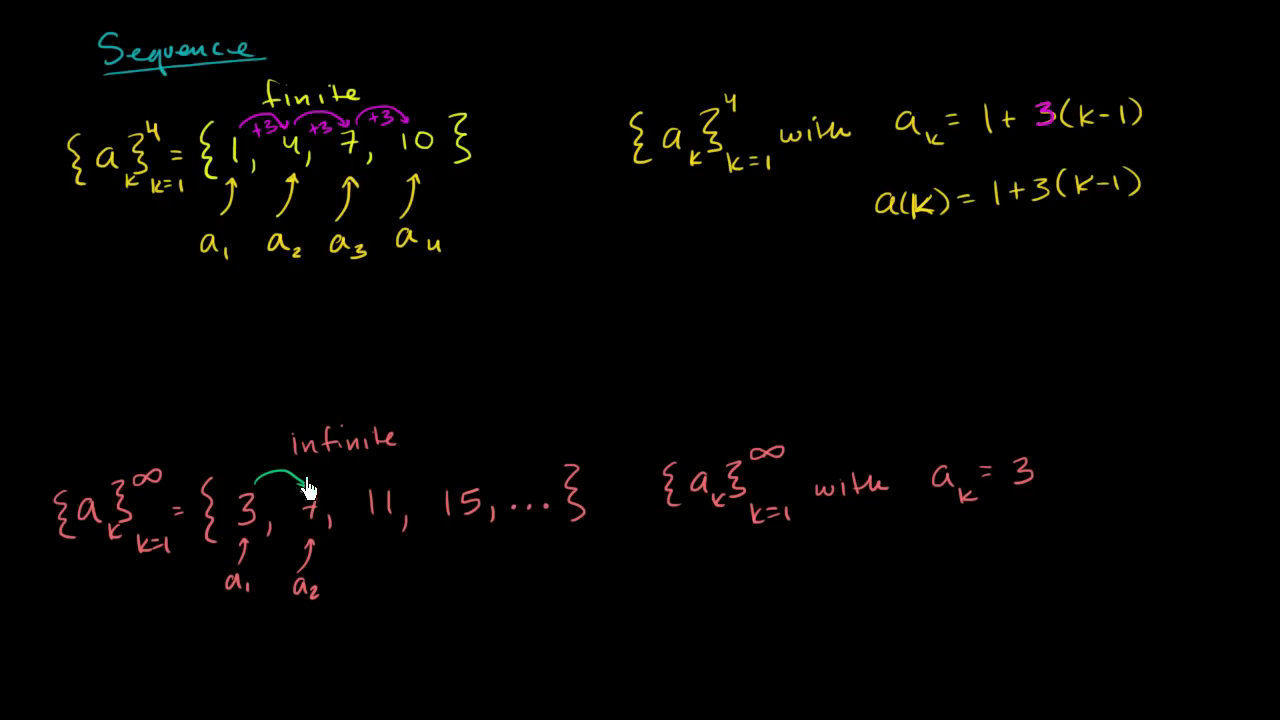 Sequence
finite
+3 +3 +3
{a_k}_{k=1}^4 = {1, 4, 7, 10}
a_1 a_2 a_3 a_4
{a_k}_{k=1}^4 with a_k = 1 + 3(k-1)
a(k) = 1+3(k-1)
infinite
{a_k}_{k=1}^∞ = {3, 7, 11, 15, ...}
a_1 a_2
{a_k}_{k=1}^∞ with a_k = 3